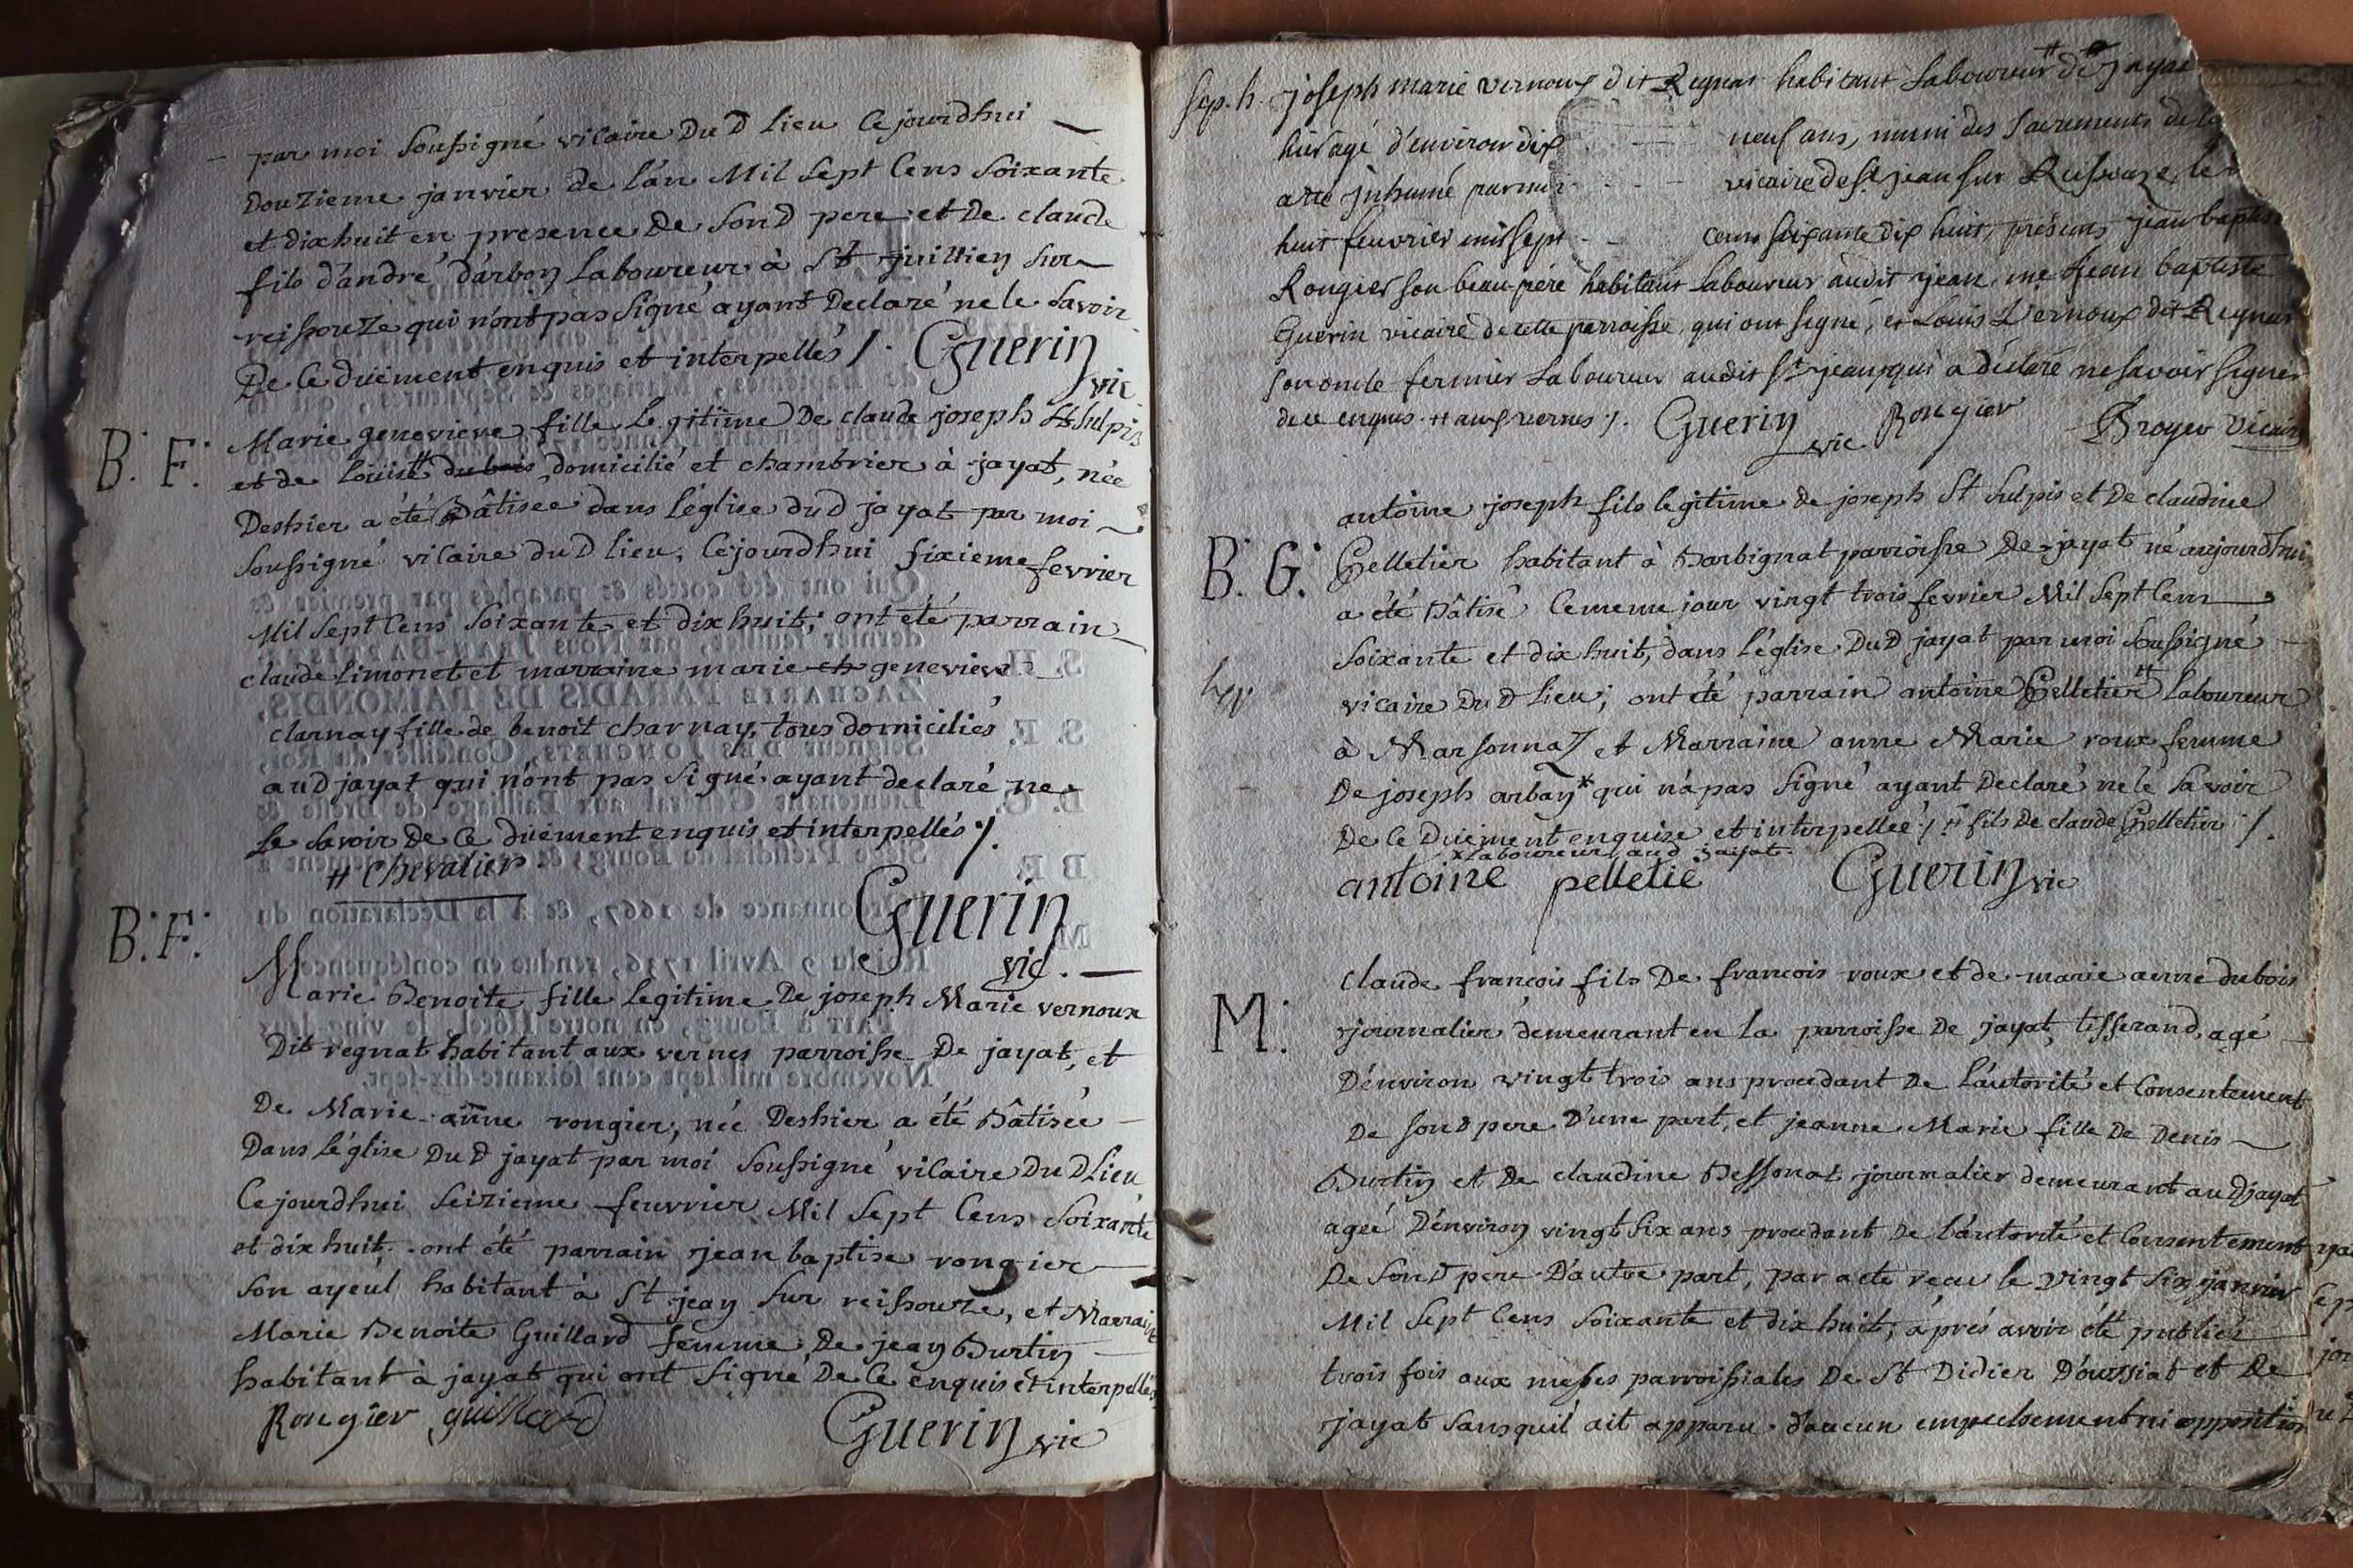 par moi soussigné vicaire Du D lieu Cejourdhui
Douzieme janvier de l'an Mil sept Cens soixante
et dixhuit en presence De son D pere et De claude
fils d'andré d'arbon Laboureur à St juillien sur
reissouze qui n'ont pas signé ayant Declaré ne le savoir
De Ce düement enquis et interpellés /. Guerin
vic
B. F. Marie genevieve fille Legitime De claude joseph St Sulpis
et de Louise # dubois domicilié et chambrier à jayat, née
Deshier a été Bâtisée dans l'église du D jayat par moi
soussigné vicaire du D lieu, Cejourdhui sixieme fevrier
Mil sept Cens soixante et dixhuit; ont été parrain
claude Limonet et marraine marie ch genevieve
clarnay fille de benoit charnay, tous domiciliés
au D jayat qui n'ont pas signé ayant declaré ne
le savoir De Ce düement enquis et interpellés /.
# Chevalier
Guerin
vic.
B. F. Marie Benoite fille legitime De joseph Marie vernoux
Dit regnat habitant aux vernes parroisse De jayat, et
De Marie anne rongier, née Deshier a été Bâtisée
Dans L'église Du D jayat par moi soussigné vicaire Du D Lieu
Cejourdhui seizieme feuvrier Mil sept Cens soixante
et dix huit. ont été parrain jean baptise rongier
son ayeul habitant à St jean sur reissouze, et Marraine
Marie Benoite Guillard femme De jean Burtin
habitant à jayat qui ont signé De Ce enquis et interpellés
Rongier guillard Guerin vic
sep. h. joseph marie vernoux dit Regnat habitant Laboureur # de jayat
hier agé d'environ dix neuf ans, muni des sacrements de
a été inhumé par moi vicaire de St jean sur Reissouze, le
huit feuvrier mil sept cens soixante dix huit, présens jean baptiste
Rongier son beau-père habitant Laboureur audit St jean, me jean baptiste
Guerin vicaire de cette parroisse, qui ont signé, et Louis Vernoux dit Regnat
son oncle fermier Laboureur audit St jean, qui a déclaré ne savoir signer
de ce enquis. # aux vernes /. Guerin vic Rongier Broyer Vicaire
antoine joseph fils legitime de joseph St Sulpis et De claudine
B. G. Pelletier habitant à Barbignat parroisse De jayat né aujourd'hui
a été Bâtisé Cememe jour vingt trois fevrier Mil sept Cens
soixante et dix huit, dans l'église Du D jayat par moi soussigné
vicaire Du D lieu; ont été parrain antoine Pelletier # Laboureur
à Marsonnaz et Marraine anne Marie roux femme
De joseph arban * qui n'a pas signé ayant Declaré ne le savoir
De Ce Düement enquise et interpellée /. # fils De claude Pelletier /.
* Laboureur au d jayat.
antoine pelletie Guerin vic
claude francois fils De francois roux et de marie anne dubois
M. journalier demeurant en la parroisse De jayat, tisserand, agé
D'environ vingt trois ans procedant De l'autorité et Consentement
De son D pere D'une part, et jeanne Marie fille De Denis
Burtin et De claudine Bessonat journalier demeurant au D jayat
ageé D'environ vingt six ans procedant De l'autorité et Consentement
De son D pere D'autre part, par acte recu le vingt six janvier
Mil sept Cens soixante et dix huit, après avoir été publiés
trois fois aux messes parroissiales De St Didier D'oussiat et De
jayat sans qu'il ait apparu d'aucun empechement ni opposition